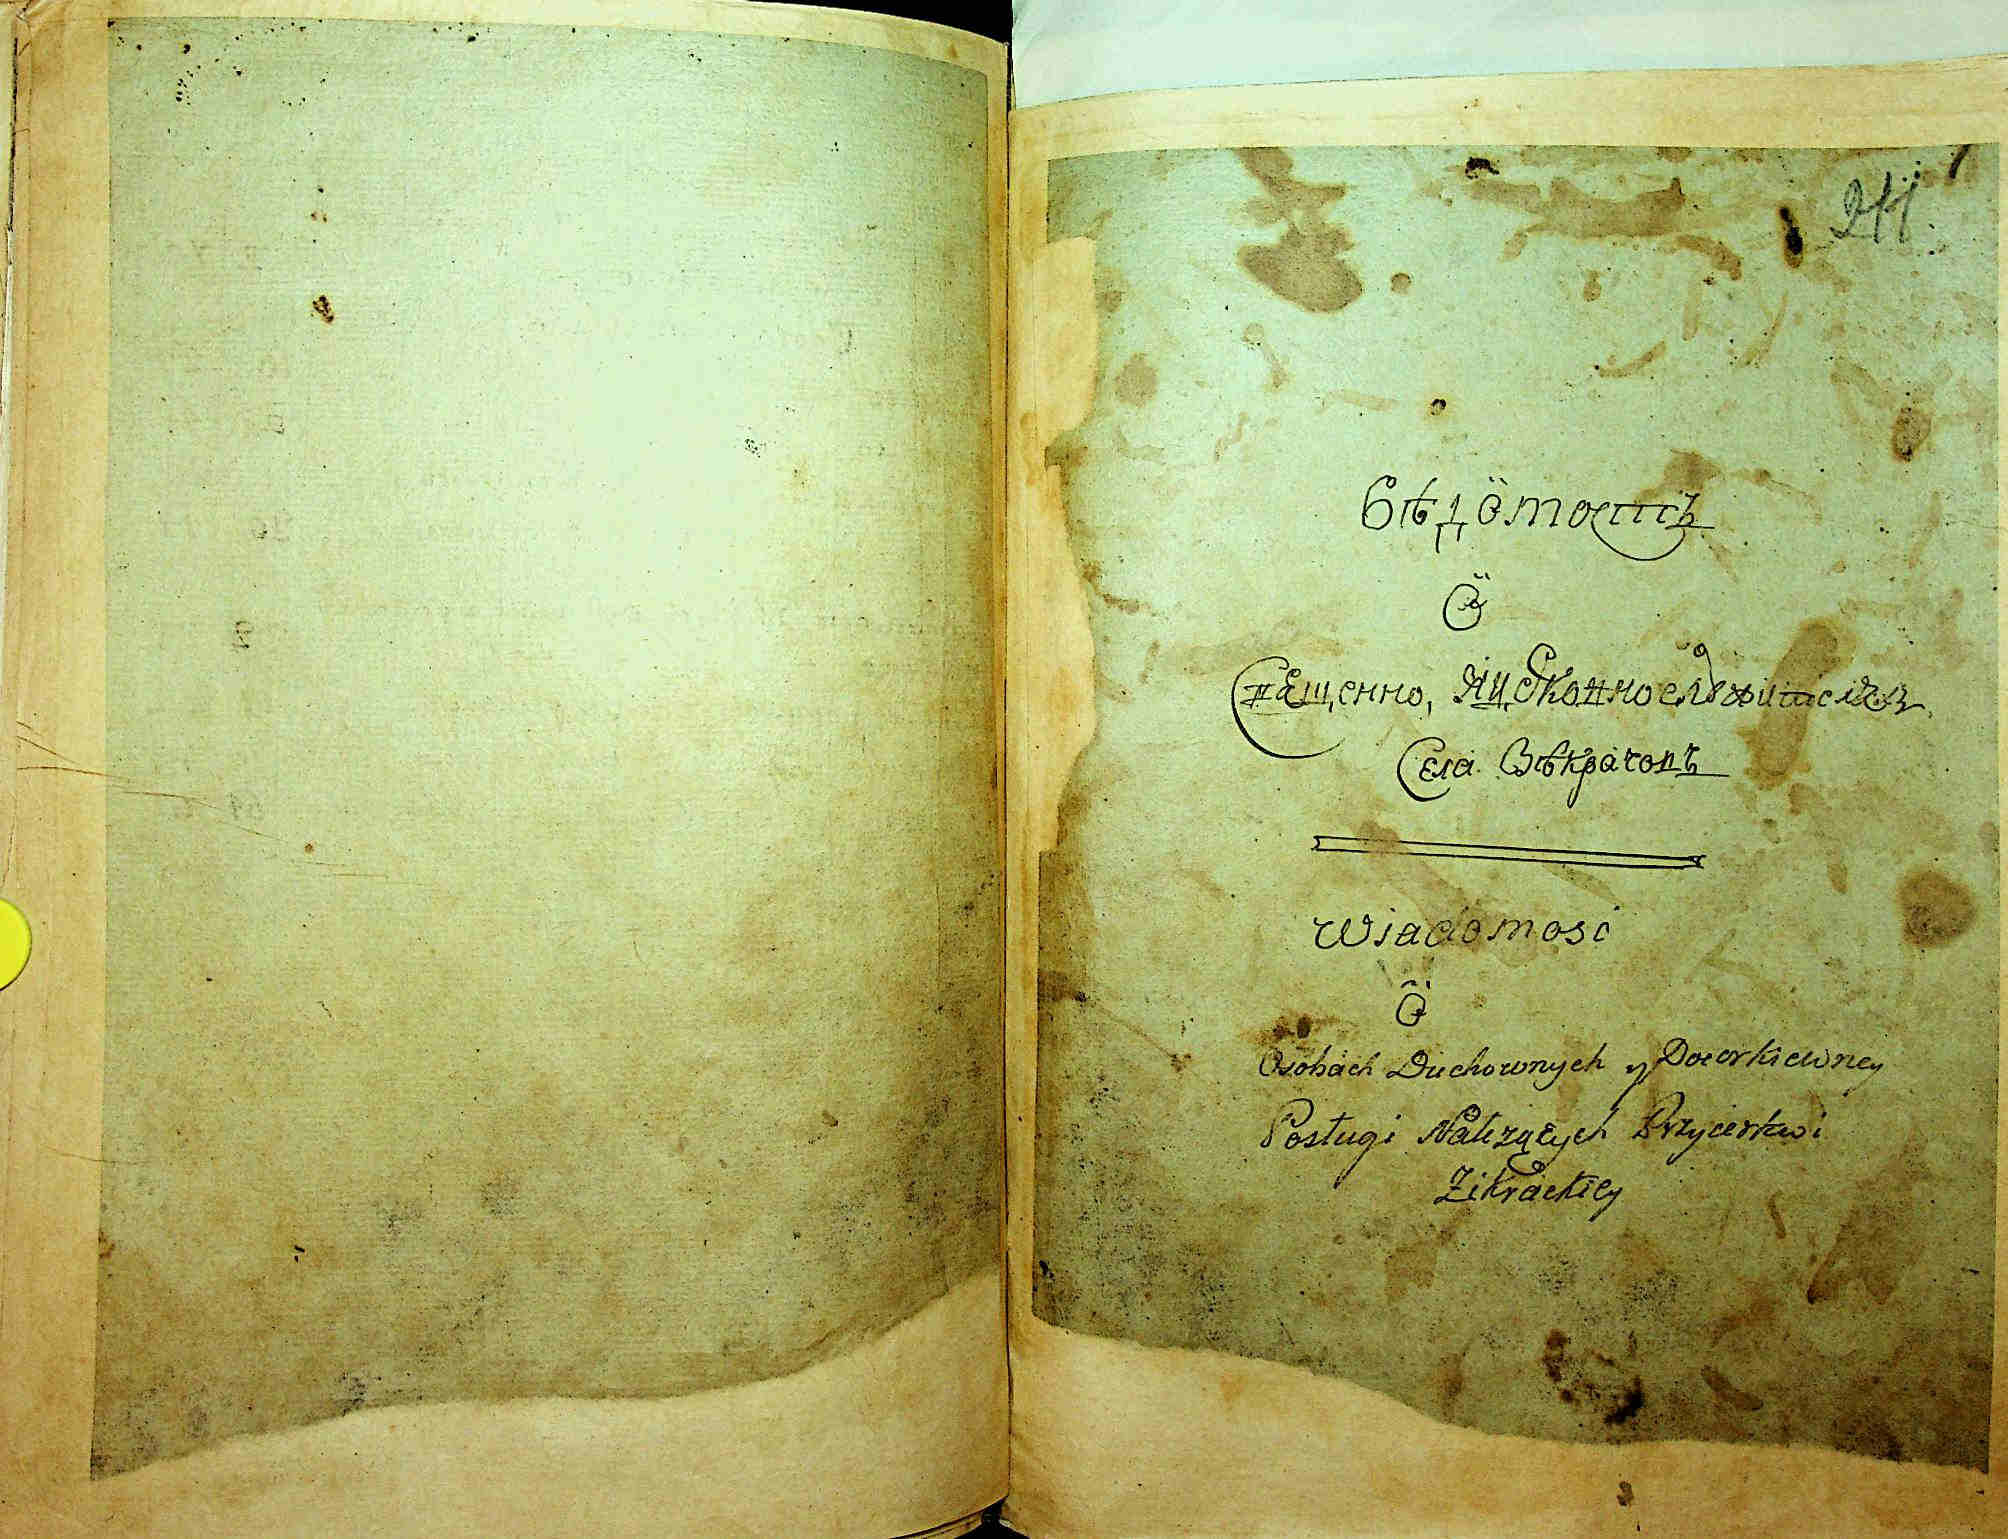 244
Вѣдомость
О
Священно, и церковнослужителехъ
Села Зѣкрачовъ
Wiadomosc
O
Osobach Duchownych y Docerkiewney
Posługi Należących Przycerkwi
Zikrackiey